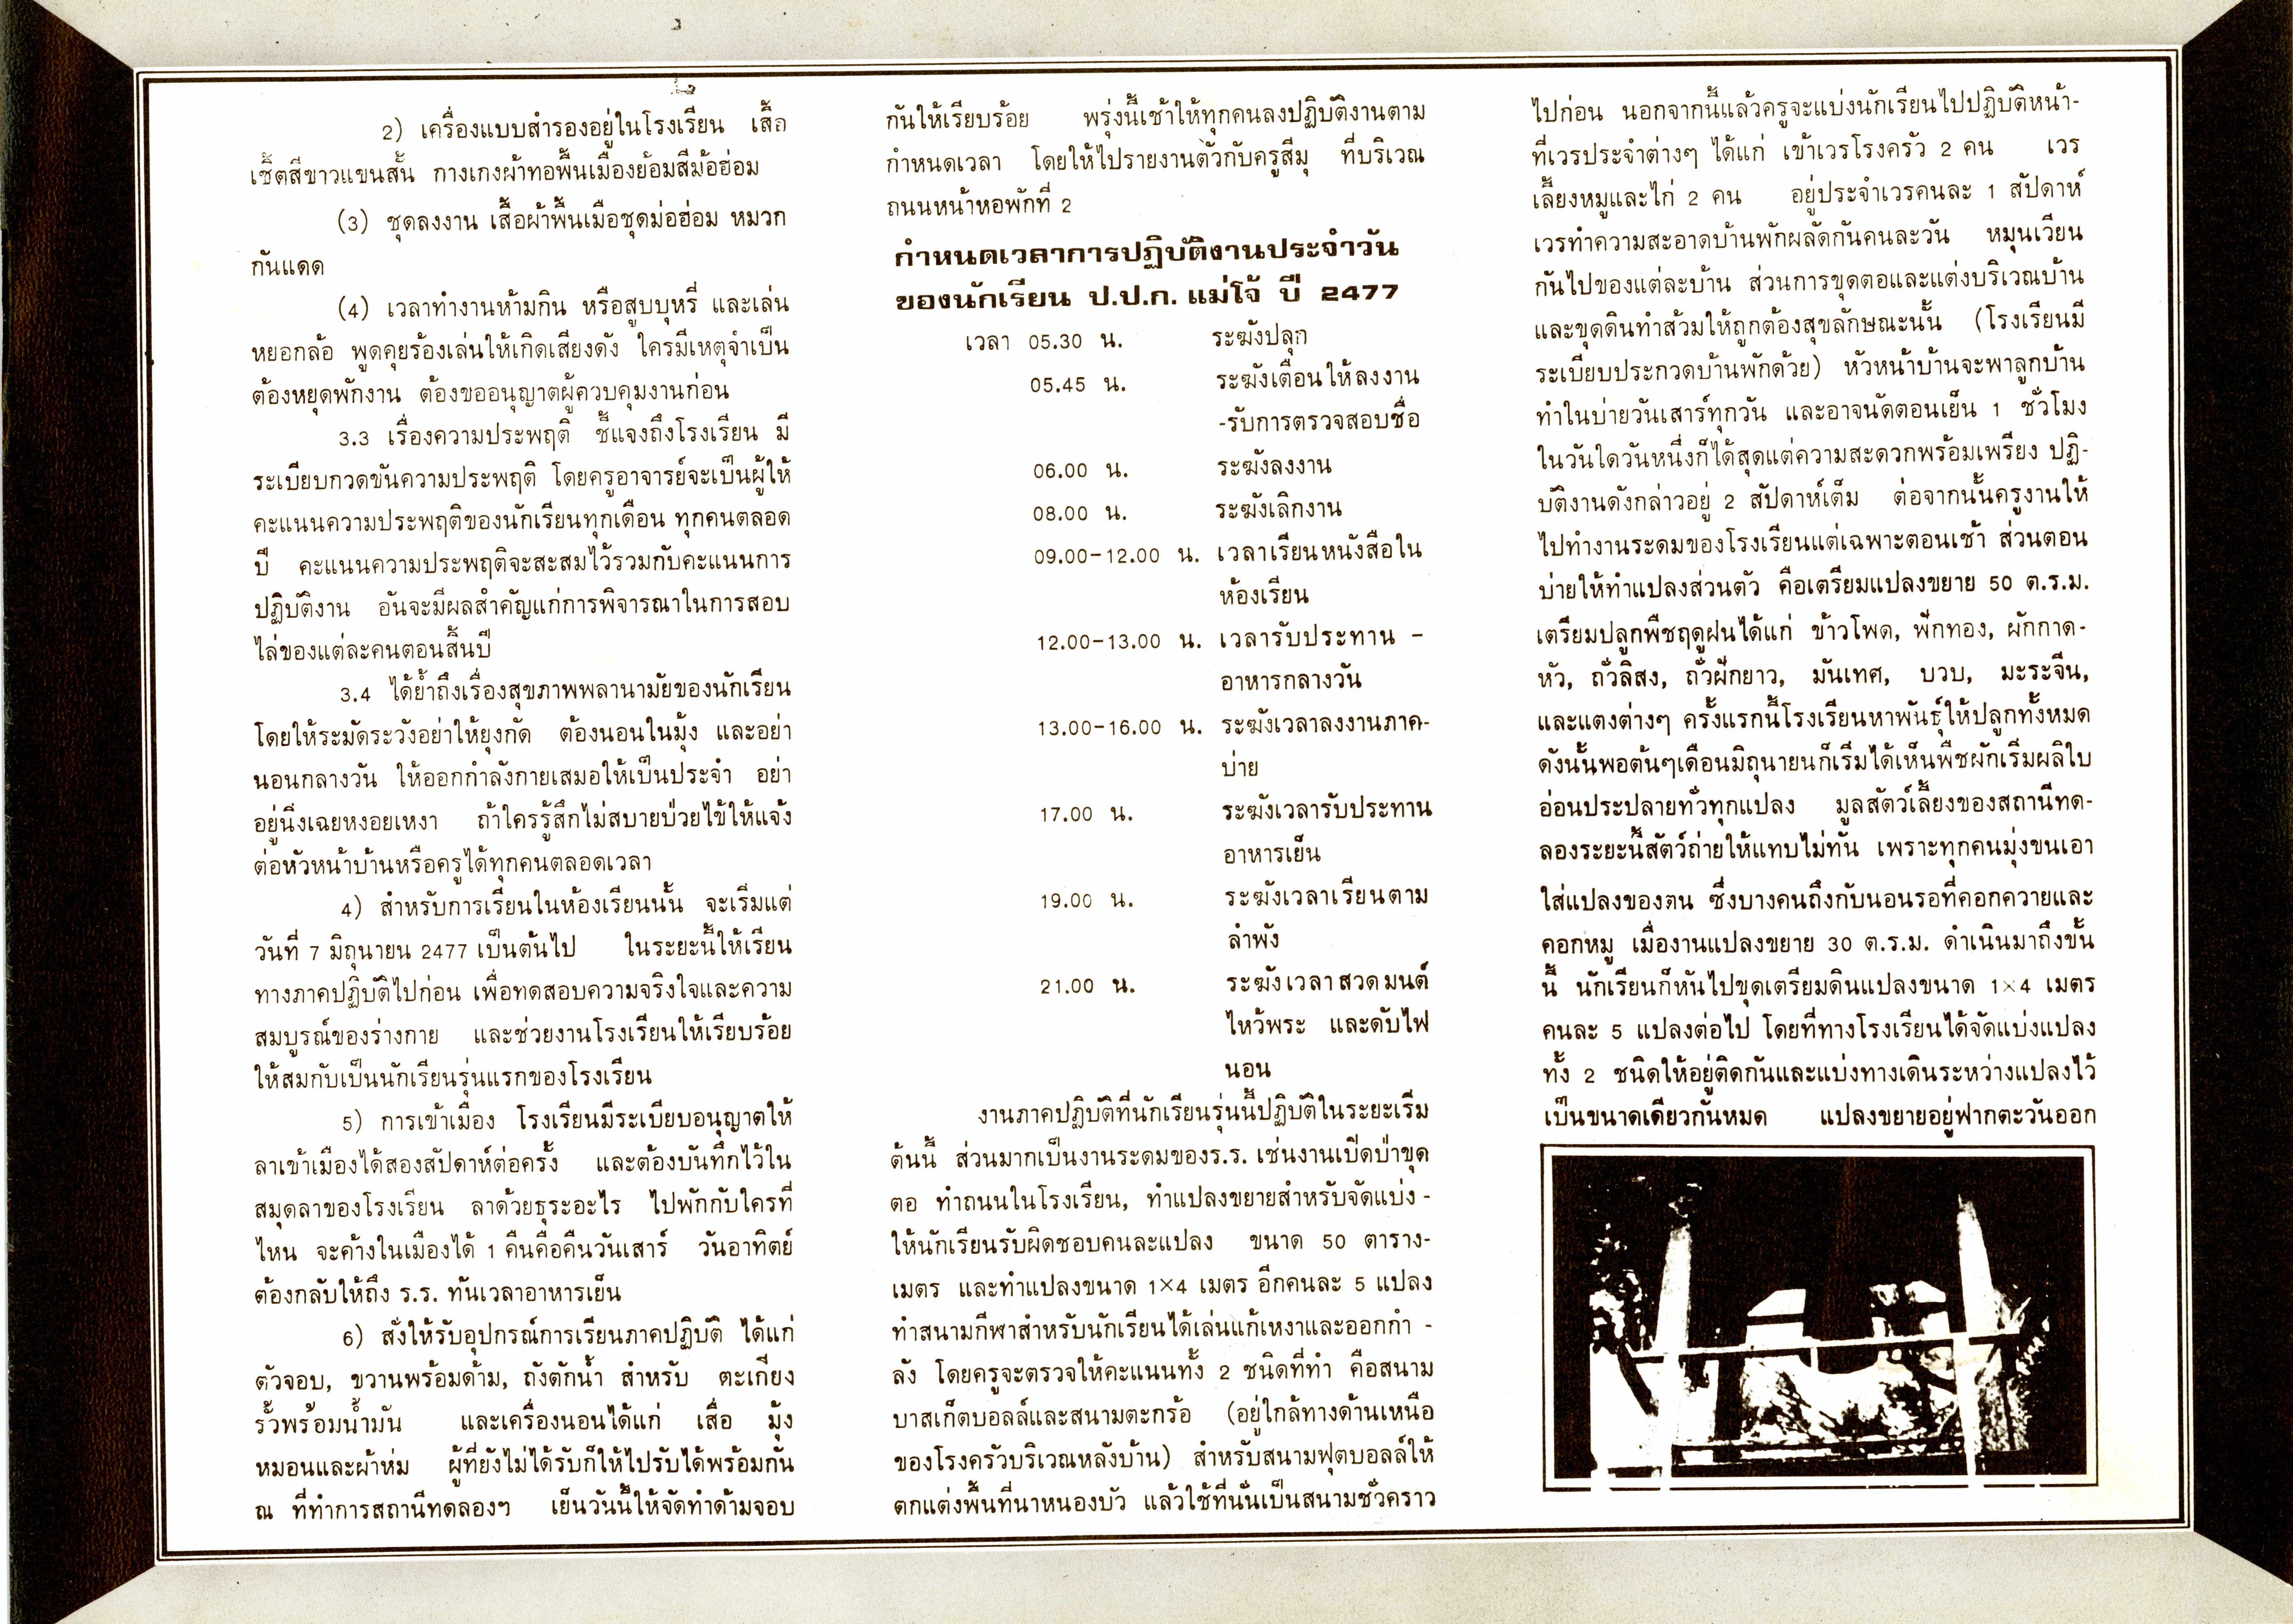 2) เครื่องแบบสำรองอยู่ในโรงเรียน เสื้อ
เชิ้ตสีขาวแขนสั้น กางเกงผ้าทอพื้นเมืองย้อมสีม้อฮ่อม
(3) ชุดลงงาน เสื้อผ้าพื้นเมือชุดม่อฮ่อม หมวก
กันแดด
(4) เวลาทำงานห้ามกิน หรือสูบบุหรี่ และเล่น
หยอกล้อ พูดคุยร้องเล่นให้เกิดเสียงดัง ใครมีเหตุจำเป็น
ต้องหยุดพักงาน ต้องขออนุญาตผู้ควบคุมงานก่อน
3.3 เรื่องความประพฤติ ชี้แจงถึงโรงเรียน มี
ระเบียบกวดขันความประพฤติ โดยครูอาจารย์จะเป็นผู้ให้
คะแนนความประพฤติของนักเรียนทุกเดือน ทุกคนตลอด
ปี คะแนนความประพฤติจะสะสมไว้รวมกับคะแนนการ
ปฏิบัติงาน อันจะมีผลสำคัญแก่การพิจารณาในการสอบ
ไล่ของแต่ละคนตอนสิ้นปี
3.4 ได้ย้ำถึงเรื่องสุขภาพพลานามัยของนักเรียน
โดยให้ระมัดระวังอย่าให้ยุงกัด ต้องนอนในมุ้ง และอย่า
นอนกลางวัน ให้ออกกำลังกายเสมอให้เป็นประจำ อย่า
อยู่นิ่งเฉยหงอยเหงา ถ้าใครรู้สึกไม่สบายป่วยไข้ให้แจ้ง
ต่อหัวหน้าบ้านหรือครูได้ทุกคนตลอดเวลา
4) สำหรับการเรียนในห้องเรียนนั้น จะเริ่มแต่
วันที่ 7 มิถุนายน 2477 เป็นต้นไป ในระยะนี้ให้เรียน
ทางภาคปฏิบัติไปก่อน เพื่อทดสอบความจริงใจและความ
สมบูรณ์ของร่างกาย และช่วยงานโรงเรียนให้เรียบร้อย
ให้สมกับเป็นนักเรียนรุ่นแรกของโรงเรียน
5) การเข้าเมือง โรงเรียนมีระเบียบอนุญาตให้
ลาเข้าเมืองได้สองสัปดาห์ต่อครั้ง และต้องบันทึกไว้ใน
สมุดลาของโรงเรียน ลาด้วยธุระอะไร ไปพักกับใครที่
ไหน จะค้างในเมืองได้ 1 คืนคือคืนวันเสาร์ วันอาทิตย์
ต้องกลับให้ถึง ร.ร. ทันเวลาอาหารเย็น
6) สั่งให้รับอุปกรณ์การเรียนภาคปฏิบัติ ได้แก่
ตัวจอบ, ขวานพร้อมด้าม, ถังตักน้ำ สำหรับ ตะเกียง
รั้วพร้อมน้ำมัน และเครื่องนอนได้แก่ เสื่อ มุ้ง
หมอนและผ้าห่ม ผู้ที่ยังไม่ได้รับก็ให้ไปรับได้พร้อมกัน
ณ ที่ทำการสถานีทดลองฯ เย็นวันนี้ให้จัดทำด้ามจอบ
กันให้เรียบร้อย พรุ่งนี้เช้าให้ทุกคนลงปฏิบัติงานตาม
กำหนดเวลา โดยให้ไปรายงานตัวกับครูสีมุ ที่บริเวณ
ถนนหน้าหอพักที่ 2
กำหนดเวลาการปฏิบัติงานประจำวัน
ของนักเรียน ป.ป.ก. แม่โจ้ ปี 2477
เวลา 05.30 น. ระฆังปลุก
05.45 น. ระฆังเตือนให้ลงงาน
-รับการตรวจสอบชื่อ
06.00 น. ระฆังลงงาน
08.00 น. ระฆังเลิกงาน
09.00-12.00 น. เวลาเรียนหนังสือใน
ห้องเรียน
12.00-13.00 น. เวลารับประทาน -
อาหารกลางวัน
13.00-16.00 น. ระฆังเวลาลงงานภาค-
บ่าย
17.00 น. ระฆังเวลารับประทาน
อาหารเย็น
19.00 น. ระฆังเวลาเรียนตาม
ลำพัง
21.00 น. ระฆังเวลาสวดมนต์
ไหว้พระ และดับไฟ
นอน
งานภาคปฏิบัติที่นักเรียนรุ่นนี้ปฏิบัติในระยะเริ่ม
ต้นนี้ ส่วนมากเป็นงานระดมของร.ร. เช่นงานเปิดป่าขุด
ตอ ทำถนนในโรงเรียน, ทำแปลงขยายสำหรับจัดแบ่ง -
ให้นักเรียนรับผิดชอบคนละแปลง ขนาด 50 ตาราง-
เมตร และทำแปลงขนาด 1×4 เมตร อีกคนละ 5 แปลง
ทำสนามกีฬาสำหรับนักเรียนได้เล่นแก้เหงาและออกกำ -
ลัง โดยครูจะตรวจให้คะแนนทั้ง 2 ชนิดที่ทำ คือสนาม
บาสเก็ตบอลล์และสนามตะกร้อ (อยู่ใกล้ทางด้านเหนือ
ของโรงครัวบริเวณหลังบ้าน) สำหรับสนามฟุตบอลล์ให้
ตกแต่งพื้นที่นาหนองบัว แล้วใช้ที่นั่นเป็นสนามชั่วคราว
ไปก่อน นอกจากนี้แล้วครูจะแบ่งนักเรียนไปปฏิบัติหน้า-
ที่เวรประจำต่างๆ ได้แก่ เข้าเวรโรงครัว 2 คน เวร
เลี้ยงหมูและไก่ 2 คน อยู่ประจำเวรคนละ 1 สัปดาห์
เวรทำความสะอาดบ้านพักผลัดกันคนละวัน หมุนเวียน
กันไปของแต่ละบ้าน ส่วนการขุดตอและแต่งบริเวณบ้าน
และขุดดินทำส้วมให้ถูกต้องสุขลักษณะนั้น (โรงเรียนมี
ระเบียบประกวดบ้านพักด้วย) หัวหน้าบ้านจะพาลูกบ้าน
ทำในบ่ายวันเสาร์ทุกวัน และอาจนัดตอนเย็น 1 ชั่วโมง
ในวันใดวันหนึ่งก็ได้สุดแต่ความสะดวกพร้อมเพรียง ปฏิ-
บัติงานดังกล่าวอยู่ 2 สัปดาห์เต็ม ต่อจากนั้นครูงานให้
ไปทำงานระดมของโรงเรียนแต่เฉพาะตอนเช้า ส่วนตอน
บ่ายให้ทำแปลงส่วนตัว คือเตรียมแปลงขยาย 50 ต.ร.ม.
เตรียมปลูกพืชฤดูฝนได้แก่ ข้าวโพด, ฟักทอง, ผักกาด-
หัว, ถั่วลิสง, ถั่วฝักยาว, มันเทศ, บวบ, มะระจีน,
และแตงต่างๆ ครั้งแรกนี้โรงเรียนหาพันธุ์ให้ปลูกทั้งหมด
ดังนั้นพอต้นๆเดือนมิถุนายนก็เริ่มได้เห็นพืชผักเริ่มผลิใบ
อ่อนประปลายทั่วทุกแปลง มูลสัตว์เลี้ยงของสถานีทด-
ลองระยะนี้สัตว์ถ่ายให้แทบไม่ทัน เพราะทุกคนมุ่งขนเอา
ใส่แปลงของตน ซึ่งบางคนถึงกับนอนรอที่คอกควายและ
คอกหมู เมื่องานแปลงขยาย 30 ต.ร.ม. ดำเนินมาถึงขั้น
นี้ นักเรียนก็หันไปขุดเตรียมดินแปลงขนาด 1×4 เมตร
คนละ 5 แปลงต่อไป โดยที่ทางโรงเรียนได้จัดแบ่งแปลง
ทั้ง 2 ชนิดให้อยู่ติดกันและแบ่งทางเดินระหว่างแปลงไว้
เป็นขนาดเดียวกันหมด แปลงขยายอยู่ฟากตะวันออก